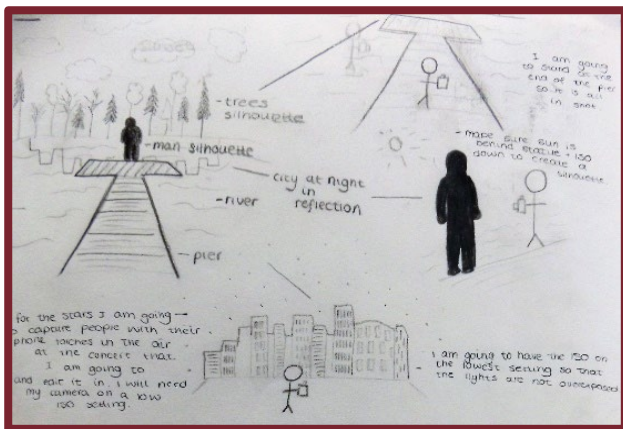 sunset
-trees
silhouette
-man silhouette
city at night
in
reflection
-river
-pier
I am going
to stand on the
end of the pier
so it is all
in shot
- make sure sun is
behind statue + ISO
down to create a
silhouette
for the stars I am going
to capture people with their
phone torches in the air
at the concert that
I am going to
and edit it in. I will need
my camera on a low
ISO setting.
I am going to have the ISO on
the lowest setting so that
the lights are not overexposed